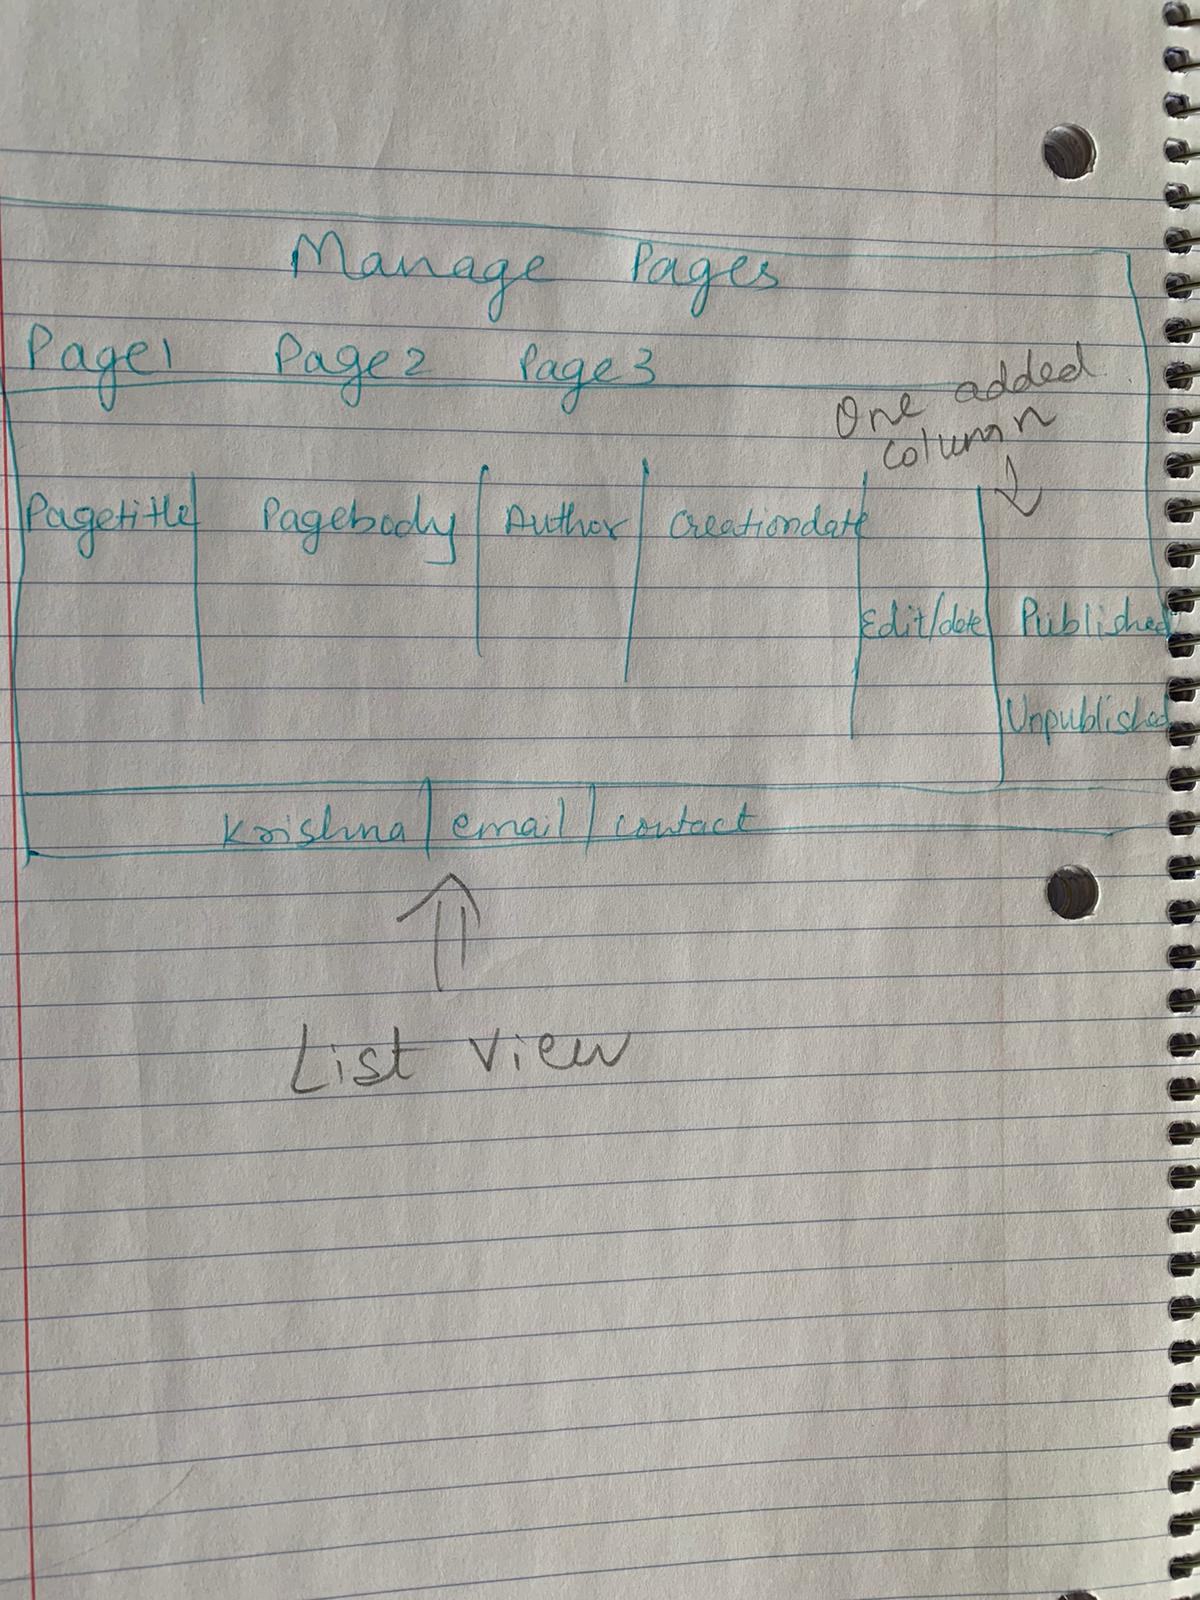 Manage Pages
Page1 Page2 Page3
One added
column
Pagetitle Pagebody Author Creationdate
Edit/dete Published
Unpublished
Krishna | email | contact
List View